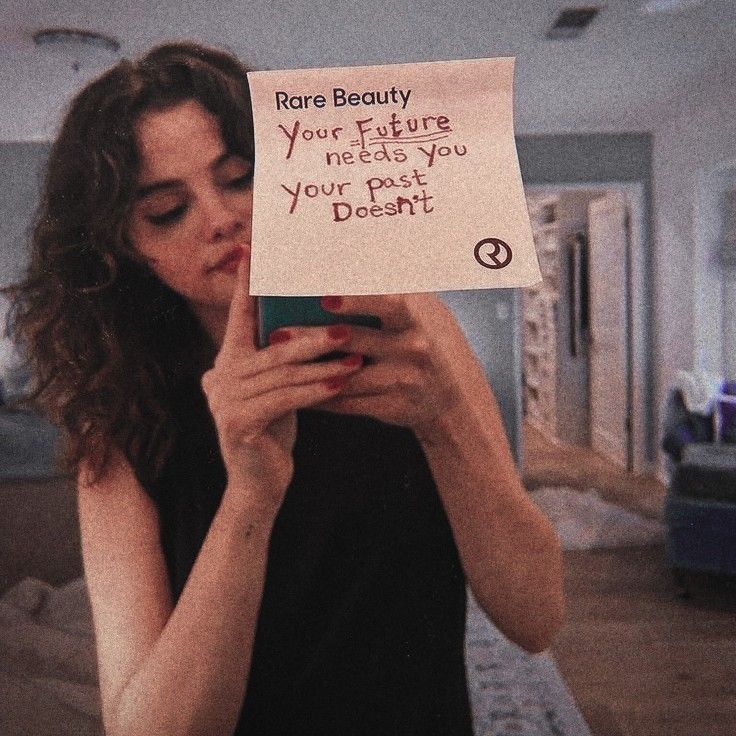 Rare Beauty
Your Future
needs you
your past
Doesn't
R